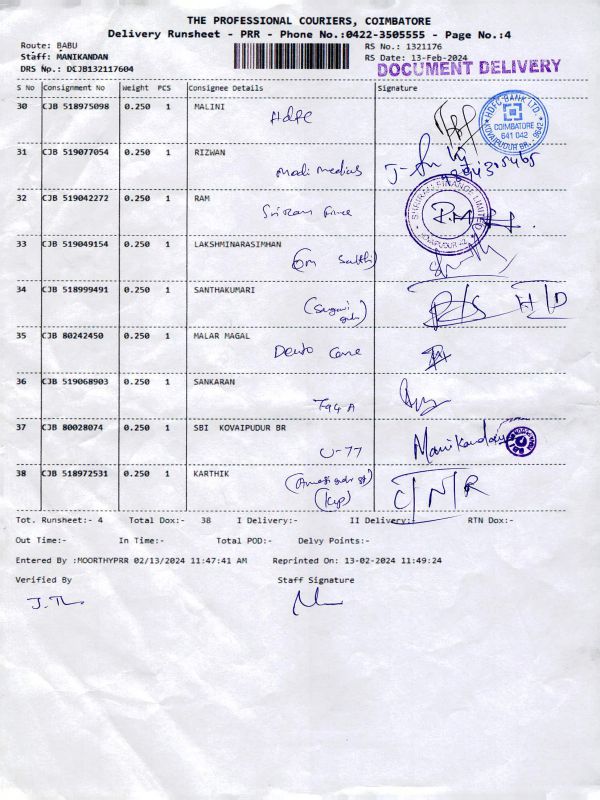 THE PROFESSIONAL COURIERS, COIMBATORE
Delivery Runsheet - PRR - Phone No.:0422-3505555 - Page No.:4
Route: BABU
RS No.: 1321176
Staff: MANIKANDAN
RS Date: 13-Feb-2024
DRS No.: DCJB132117604
DOCUMENT DELIVERY
S No Consignment No Weight PCS Consignee Details Signature
30 CJB 518975098 0.250 1 MALINI
Hdfc
HDFC BANK LTD. COIMBATORE 641 042 KOVAIPUDUR BR.
31 CJB 519077054 0.250 1 RIZWAN
modi medias
32 CJB 519042272 0.250 1 RAM
SHRIRAM FINANCE LIMITED KOVAIPUDUR
33 CJB 519049154 0.250 1 LAKSHMINARASIMHAN
(Om Sakthi)
34 CJB 518999491 0.250 1 SANTHAKUMARI
R/S H/D
35 CJB 80242450 0.250 1 MALAR MAGAL
Dento Care
36 CJB 519068903 0.250 1 SANKARAN
794 A
37 CJB 80028074 0.250 1 SBI KOVAIPUDUR BR
U-77
Manikandan
38 CJB 518972531 0.250 1 KARTHIK
(Kvp)
C/N/R
Tot. Runsheet:- 4 Total Dox:- 38 I Delivery:- II Delivery:- RTN Dox:-
Out Time:- In Time:- Total POD:- Delvy Points:-
Entered By :MOORTHYPRR 02/13/2024 11:47:41 AM Reprinted On: 13-02-2024 11:49:24
Verified By Staff Signature